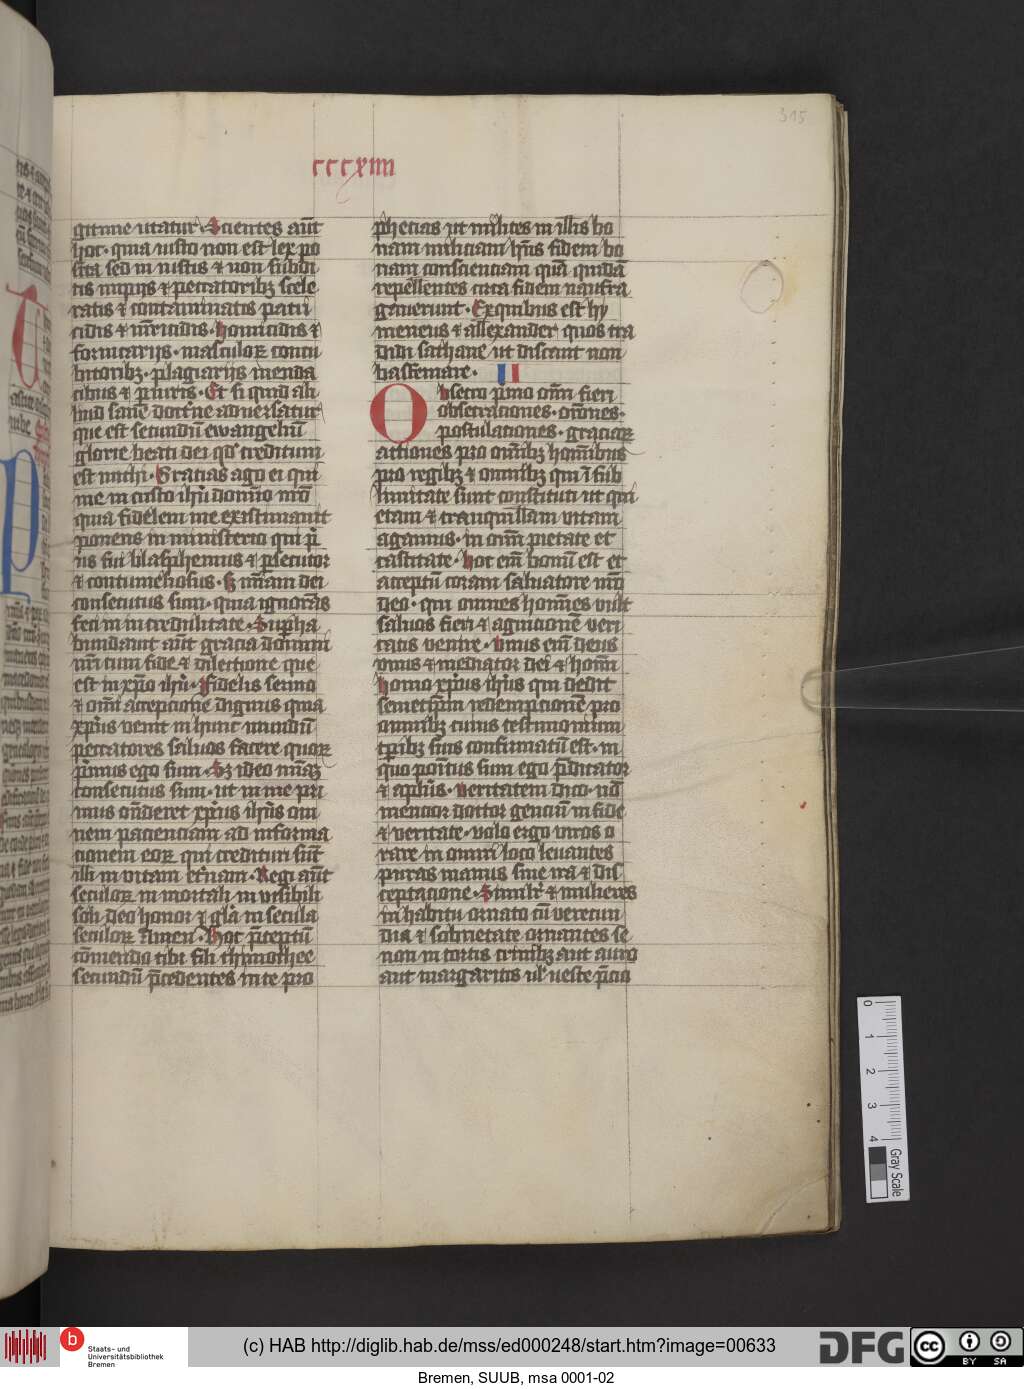 315
cccxiiii
gitime utatur. Scientes aūt
hoc. quia iusto non est lex po
sita sed in iustis ⁊ non subdi
tis impijs ⁊ peccatoribꝫ scele
ratis ⁊ contaminatis patri
cidis ⁊ mr̄icidis. homicidis ⁊
fornicarijs. masculoꝝ concu
bitoribꝫ. plagiarijs menda
cibus ⁊ ꝑiuris. Et si quid ali
iud sane doctͥne aduersatur
que est secundū ewangeliū
glorie beati dei qď creditum
est michi. Gratias ago ei qui
me in cristo ihū domīo nrō
quia fidelem me existimauit
ponens in ministerio qui pͥ
us fui blasphemus ⁊ ꝑsecutor
⁊ contumeliosus. Sꝫ mīam dei
consecutus sum. quia ignorās
feci in incredulitate. Suꝑha
bundant aūt gracia domini
nr̄i cum fide ⁊ dilectione que
est in xp̄o ihū. Fidelis sermo
⁊ omī accepcione dignus quia
xp̄us venit in hunc mundū
peccatores saluos facere quoꝝ
pͥmus ego sum. Sꝫ ideo mīaꝫ
consecutus sum. ut in me pri
mus oñderet xp̄us ihūs om
nem pacienciam ad informa
cionem eoꝝ qui credituri sūt
illi in vitam et̄nam. Regi aūt
seculoꝝ in mortali in visibili
soli deo honor ⁊ gl̄a in secula
seculoꝝ Amen. Hoc p̄ceptū
cōmendo tibi fili thimothee
secundū p̄cedentes in te pro
phecias ut milites in illis bo
nam miliciam hn̄s fidem bo
nam conscienciam quā quidā
repellentes circa fidem naufra
gauerunt. Ex quibus est hy
meneus ⁊ allexander quos tra
didi sathane ut discant non
blasfemare. II
Obsecro pͥmo om̄ fieri
obsecraciones. or̄ones.
postulationes. graciaꝝ
actiones pro omībꝫ homībus
pro regibꝫ ⁊ omnibꝫ qui ī sub
limitate sunt constituti ut qui
etam ⁊ tranquillam vitam
agamus. in om̄ pietate et
castitate. hoc em̄ bonū est et
acceptū coram saluatore nrō
deo. qui omnes homīes vult
saluos fieri ⁊ agnicionē veri
tatis venire. Vnus em̄ deus
vnus ⁊ mediator dei ⁊ homī
homo xp̄us ihūs qui dedit
semetip̄m redempcionē pro
omnibꝫ cuius testimonium
tp̄ribꝫ suis confirmatū est. in
quo poītus sum ego p̄dicator
⁊ ap̄lus. veritatem dico. nō
mencior doctor genciū in fide
⁊ veritate. volo ergo viros o
rare in omni loco leuantes
puras manus sine ira ⁊ dis
ceptacione. Similr̄ ⁊ mulieres
in habitu ornato cū verecun
dia ⁊ sobrietate ornantes se
non in tortis crinibꝫ aut auro
aut margaritis ul̓ veste p̄cio
0 1 2 3 4
Gray Scale
b
Staats- und
Universitätsbibliothek
Bremen
(c) HAB http://diglib.hab.de/mss/ed000248/start.htm?image=00633
DFG
cc BY SA
Bremen, SUUB, msa 0001-02